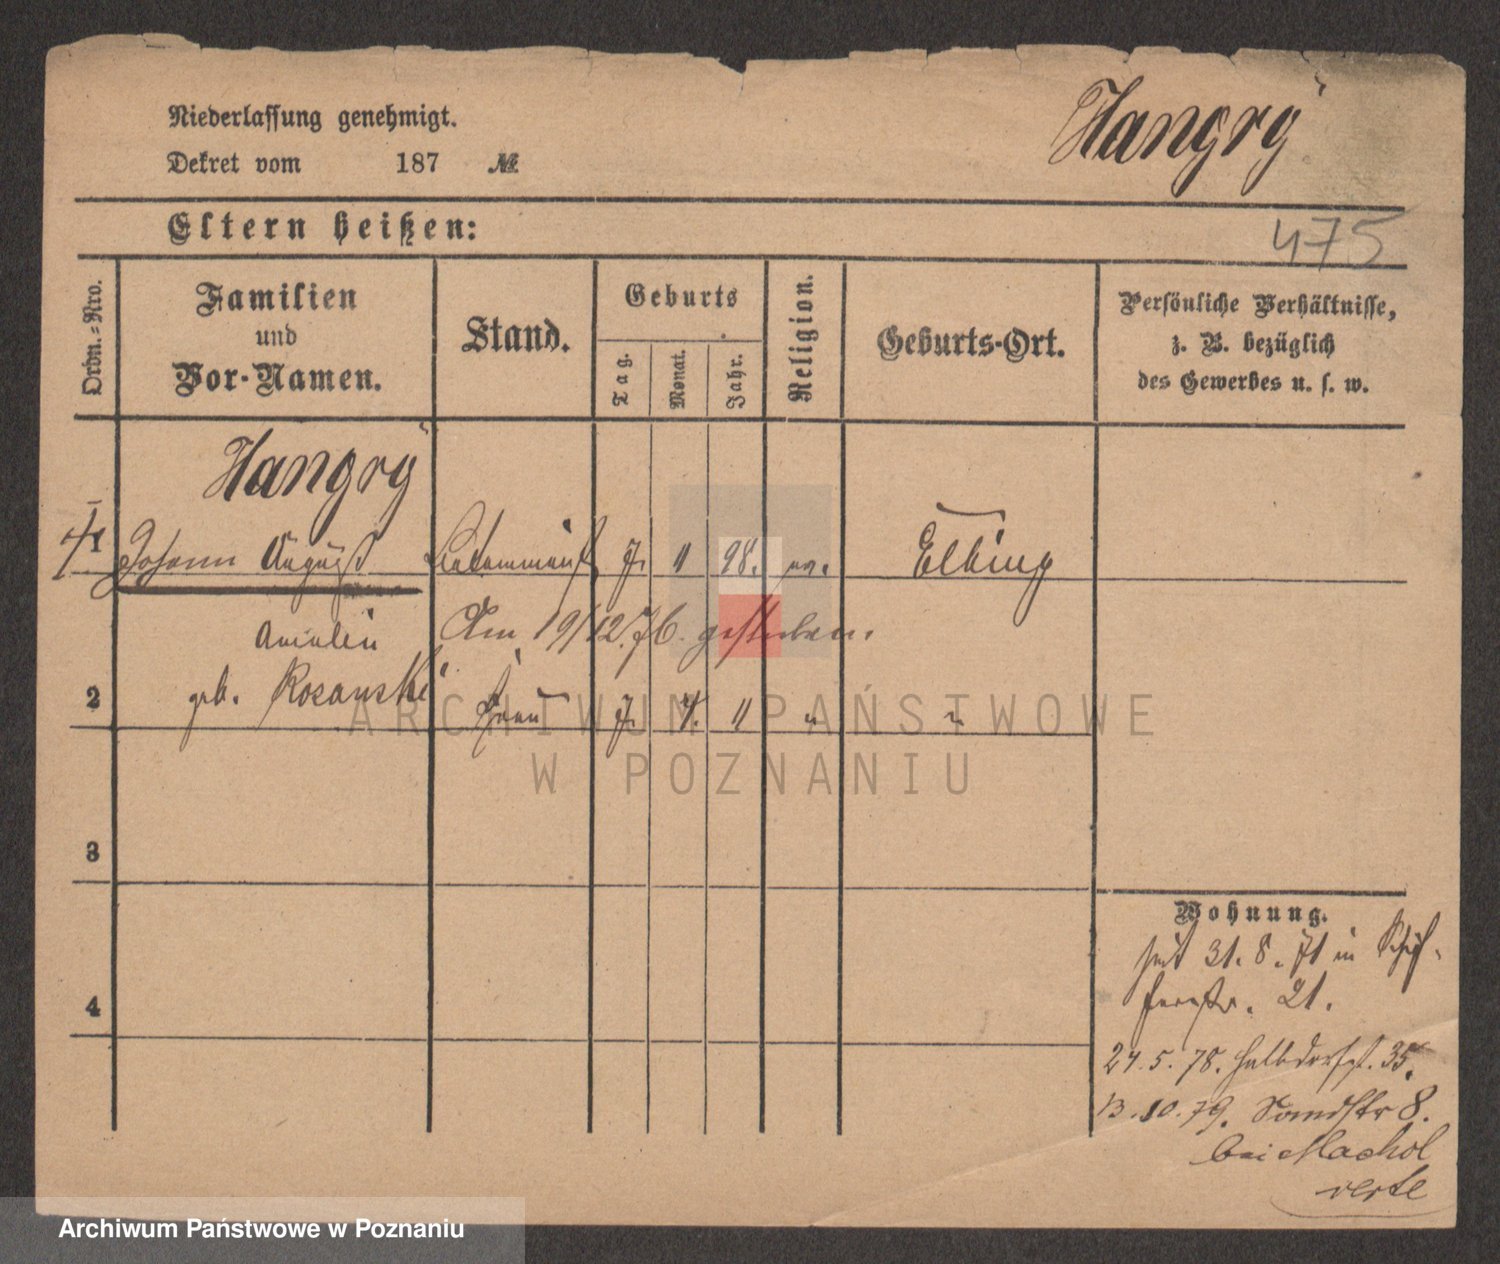 Niederlassung genehmigt.
Dekret vom 187 №
Hangrÿ
Eltern heißen:
475
Ordn.-Nro.
Familien
und
Vor-Namen.
Stand.
Geburts
Tag.
Monat.
Jahr.
Religion.
Geburts-Ort.
Persönliche Verhältnisse,
z. B. bezüglich
des Gewerbes u. s. w.
Hangrÿ
1 Johann August 7. 11 98. ev. Elbing
Am 19/12.76. gestorben.
2 geb. Rozanski Frau 7. 4. 11 " "
3
4
Wohnung.
seit 31. 8. 71 in Schif-
ferstr. 21.
24. 5. 78. Halbdorfst. 35.
13. 10. 79. Sandstr 8.
bei Machol
verte
ARCHIWUM PAŃSTWOWE
W POZNANIU
Archiwum Państwowe w Poznaniu